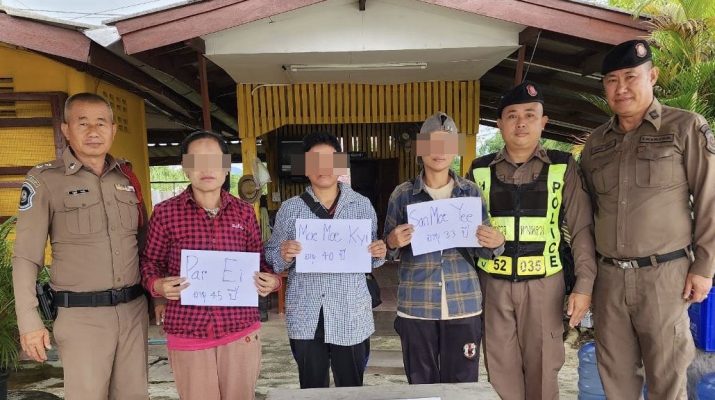 Par Ei
อายุ 45 ปี
Moe Moe Kyi
อายุ 40 ปี
San Moe Yee
อายุ 33 ปี
POLICE
ทางหลวง
52 035